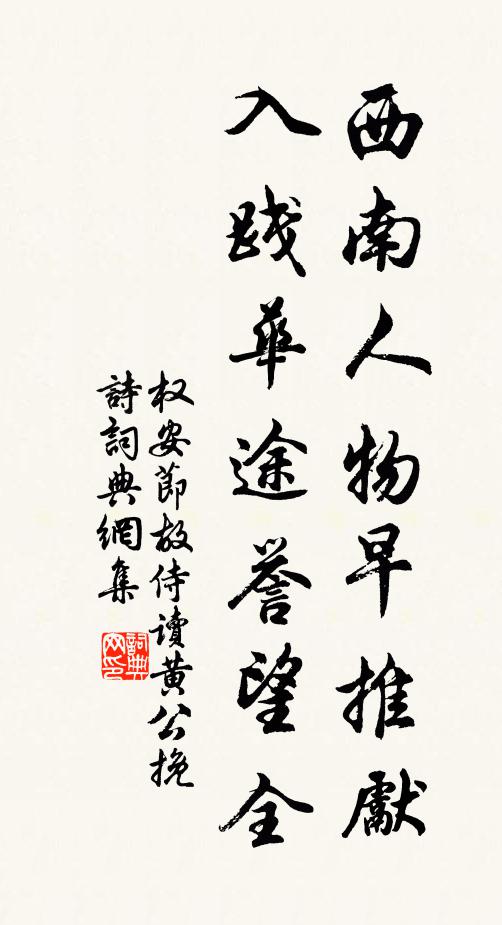 西南人物早推獻
入踐華途譽望全
权安節故侍讀黃公挽
詩詞典網集
詞典
网印